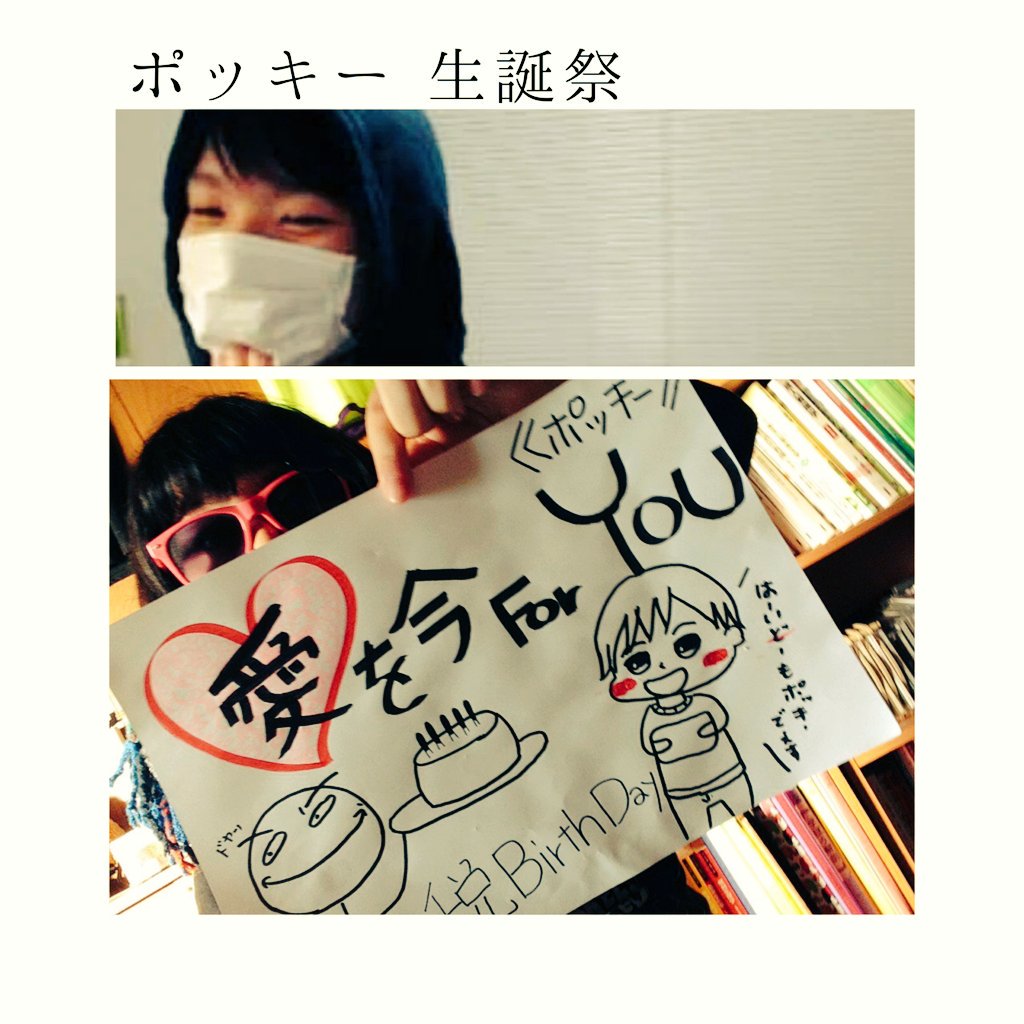 ポッキー 生誕祭
《ポッキー》
YOU
愛を今 For
はーいどーもポッキーでぇす
ドヤッ
Birth Day